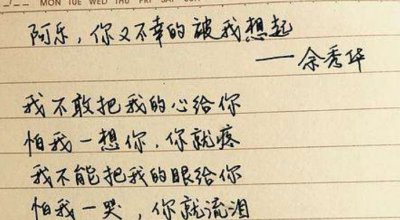 MON TUE WED THU FRI SAT SUN
阿乐，你又不幸的被我想起
——余秀华
我不敢把我的心给你
怕我一想你，你就疼
我不能把我的眼给你
怕我一哭，你就流泪